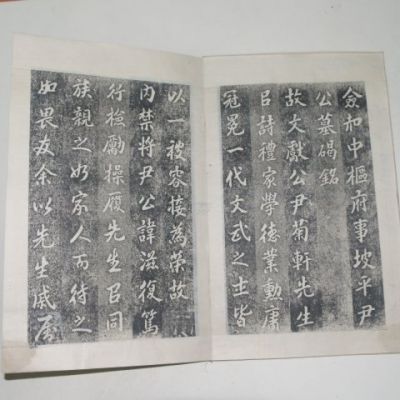 僉知中樞府事坡平尹
公墓碣銘
故文獻公尹菊軒先生
㠯詩禮家學德業勳庸
冠冕一代文武之士皆
以一被容接為榮故
內禁將尹公諱滋復篤
行檢勵操履先生㠯同
族親之如家人而待之
如畏友余以先生戚居